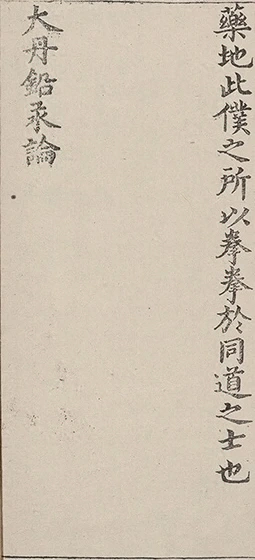 藥地此僕之所以拳拳於同道之士也
大丹鉛汞論